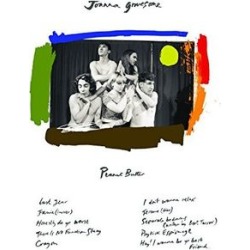 Joanna Gruesome
Peanut Butter
Last Year
Jamie (Luver)
Honestly Do Yr Worst
There Is No Function Stacy
Crayon
I Don't Wanna Relax
Jerome (Liar)
Separate Bedroom
Psychic Espionage
Hey! I Wanna Be Yr Best
Friend